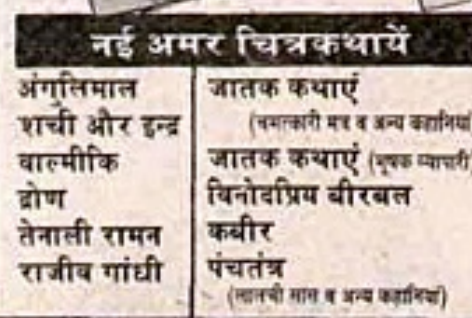 नई अमर चित्रकथायें
अंगुलिमाल
शची और इन्द्र
वाल्मीकि
द्रोण
तेनाली रामन
राजीव गांधी
जातक कथाएं
(चमत्कारी मंत्र व अन्य कहानियां)
जातक कथाएं (मूषक व्यापारी)
विनोदप्रिय बीरबल
कबीर
पंचतंत्र
(लालची सास व अन्य कहानियां)